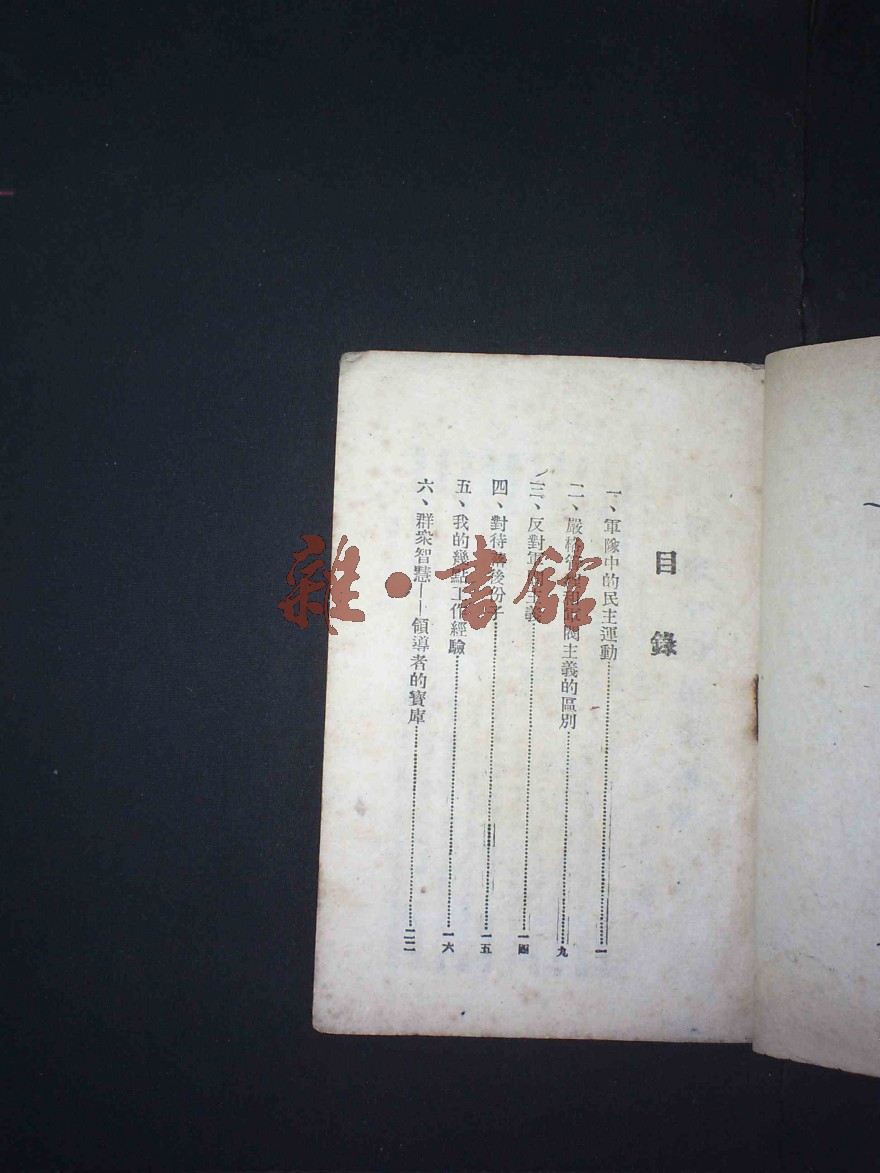 目錄
一、軍隊中的民主運動……一
二、嚴格管理和軍閥主義的區別……九
三、反對軍閥主義……一四
四、對待落後份子……一五
五、我的幾點工作經驗……一六
六、群衆智慧——領導者的寶庫……二二
雜·書館